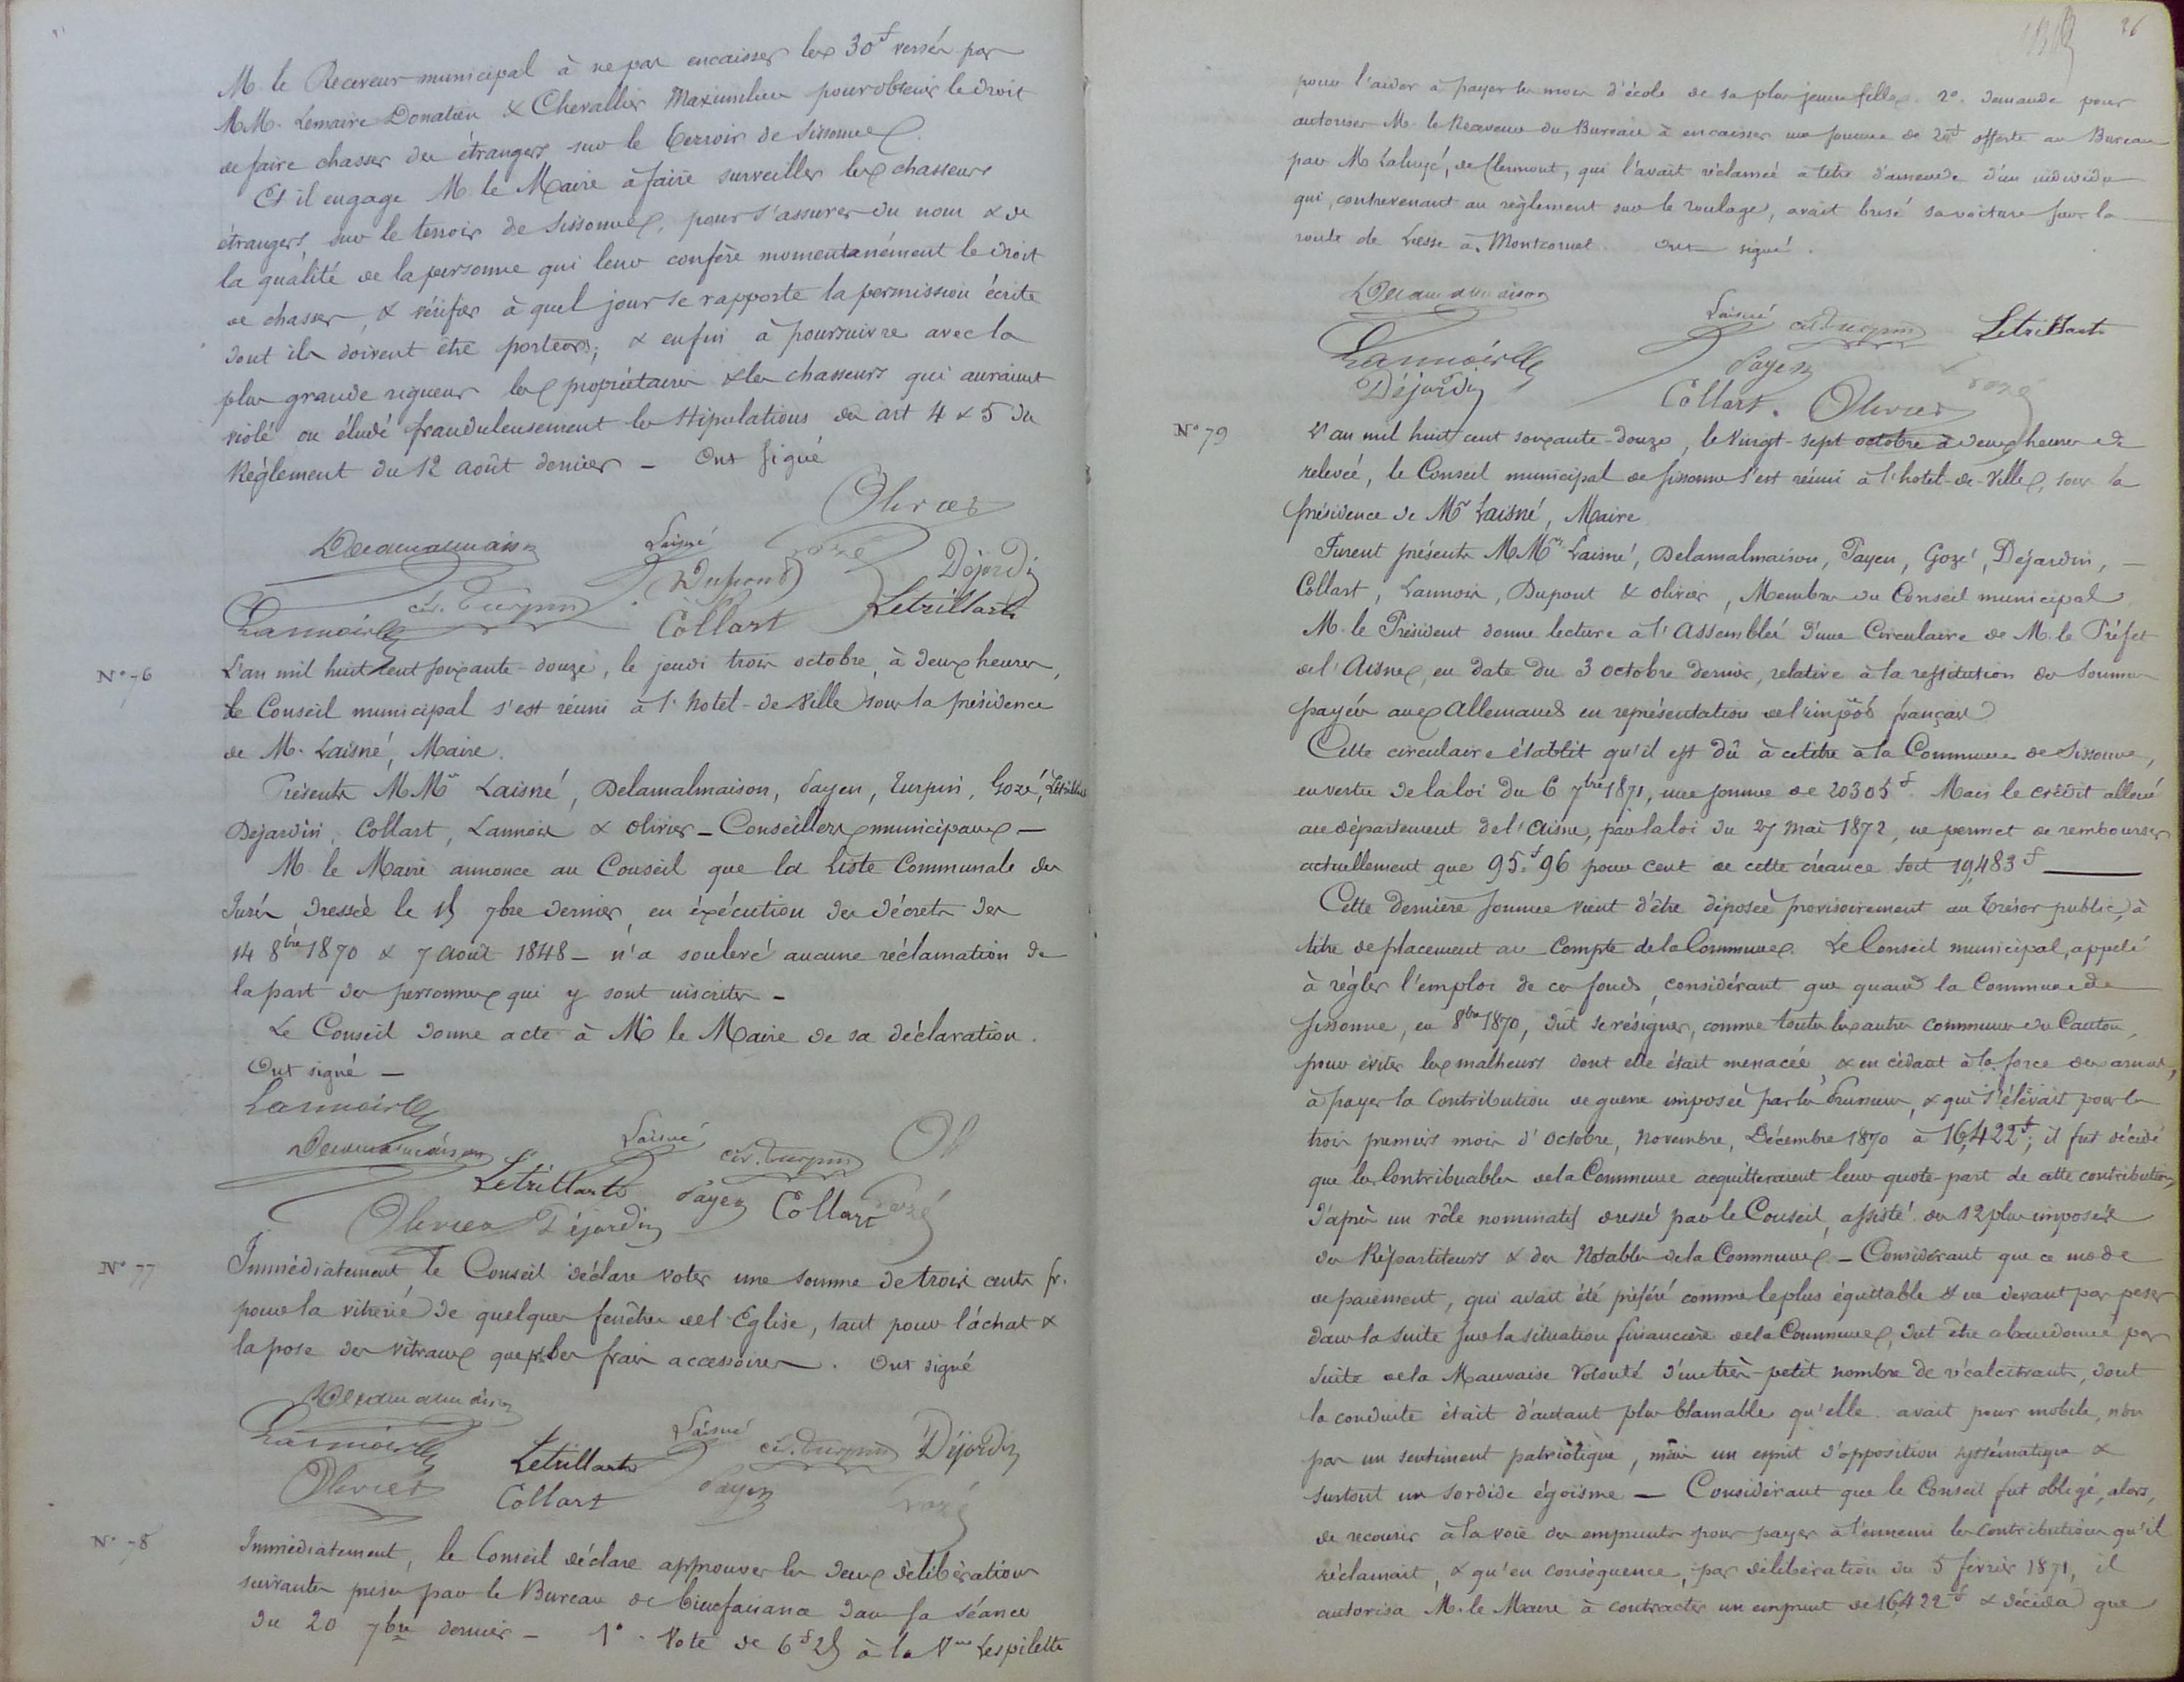 M le Receveur municipal à ne pas encaisser les 30f versés par
MM. Lemaire Donatien & Chevallier Maximilien pour obtenir le droit
de faire chasser des étrangers sur le terroir de Sissonne
Et il engage M le Maire à faire surveiller les chasseurs
étrangers sur le terroir de Sissonne, pour s'assurer du nom & de
la qualité de la personne qui leur confère momentanément le droit
de chasser, & vérifier à quel jour se rapporte la permission écrite
dont ils doivent être porteurs; & enfin à poursuivre avec la
plus grande rigueur les propriétaires & les chasseurs qui auraient
violé ou éludé frauduleusement les stipulations des art 4 & 5 du
Règlement du 12 août dernier _ Ont signé
Olivier
Delamalmaison Laisné Gozé Dejardin
Lannoir cés. Turpin Dupont Collart Letrillart
N° 76
L'an mil huit cent soixante-douze, le jeudi trois octobre, à deux heures,
Le Conseil municipal s'est réuni à l'hotel-de Ville sous la présidence
de M. Laisné, Maire.
Présents MMrs Laisné, Delamalmaison, Payen, Turpin, Gozé, Letrillart
Dejardin, Collart, Lannoir & Olivier _ Conseillers municipaux _
M. le Maire annonce au Conseil que la Liste Communale des
Jurés dressée le 15 7bre dernier, en éxécution des décrets des
14 8bre 1870 & 7 août 1848 _ n'a soulevé aucune réclamation de
la part des personnes qui y sont inscrites _
Le Conseil donne acte à Mr le Maire de sa déclaration.
Ont signé _
Lannoir
Delamalmaison Laisné cés. Turpin Ol
Letrillart Payen Collart Gozé
Olivier Dejardin
N° 77
Immédiatement le Conseil déclare voter une somme de trois cents fr.
pour la vitrerie de quelques fenêtres de l'Eglise, tant pour l'achat &
la pose des vitraux que les frais accessoires. Ont signé
Delamalmaison
Lannoir Laisné cés. Turpin Dejardin
Letrillart
Olivier Collart Payen Gozé
N° 78
Immédiatement, le Conseil déclare approuver les deux délibérations
suivantes prises par le Bureau de bienfaisance dans sa séance
du 20 7bre dernier _ 1° . Vote de 6f 25 à la Vve Lespilette
26
pour l'aider à payer les mois d'école de sa plus jeune fille. 2°. demande pour
autoriser M. le Receveur du Bureau à encaisser une somme de 20f offerte au Bureau
par M de Clermont, qui l'avait réclamée à titre d'amende d'un individu
qui, contrevenant au règlement sur le roulage, avait brisé sa voiture sur la
route de Liesse à Montcornet. Ont signé.
Delamalmaison
Laisné cés. Turpin Letrillart
Lannoir Payen Gozé
Dejardin Collart. Olivier
N° 79
L'an mil huit cent soixante-douze, le vingt-sept octobre à deux heures de
relevée, le Conseil municipal de Sissonne s'est réuni à l'hotel-de-Ville, sous la
présidence de Mr Laisné, Maire
Furent présents MMrs Laisné, Delamalmaison, Payen, Gozé, Dejardin, _
Collart, Lannoir, Dupont & Olivier, Membres du Conseil municipal
M. le Président donne lecture à l'Assemblée d'une Circulaire de M. le Préfet
de l'Aisne, en date du 3 octobre dernier, relative à la restitution des sommes
payées aux Allemands en représentation de l'impôt français
Cette circulaire établit qu'il est dû à ce titre à la Commune de Sissonne,
en vertu de la loi du 6 7bre 1871, une somme de 20305f. Mais le crédit alloué
au département de l'Aisne, par la loi du 27 mai 1872, ne permet de rembourser
actuellement que 95f.96 pour cent de cette créance soit 19,483f
Cette dernière somme vient d'être déposée provisoirement au trésor public, à
titre de placement au compte de la Commune. Le Conseil municipal, appelé
à régler l'emploi de ces fonds, considérant que quand la Commune de
Sissonne, en 8bre 1870, dût se résigner, comme toutes les autres communes du Canton,
pour éviter les malheurs dont elle était menacée, & en cédant à la force des armes,
à payer la Contribution de guerre imposée par les Prussiens, & qui s'élevait pour les
trois premiers mois d'octobre, Novembre, Décembre 1870 à 16,422f; il fut décidé
que les Contribuables de la Commune acquitteraient leur quote-part de cette contribution,
d'après un rôle nominatif dressé par le Conseil, assisté des 12 plus imposés
des Répartiteurs & des Notables de la Commune. _ Considérant que ce mode
de paiement, qui avait été préféré comme le plus équitable & ne devant pas peser
dans la suite sur la situation financière de la Commune, dut être abandonné par
suite de la Mauvaise Volonté d'un très-petit nombre de récalcitrants, dont
la conduite était d'autant plus blamable qu'elle avait pour mobile, non
pas un sentiment patriotique, mais un esprit d'opposition systématique &
surtout un sordide égoïsme _ Considérant que le Conseil fut obligé, alors,
de recourir à la voie des emprunts pour payer à l'ennemi les contributions qu'il
réclamait, & qu'en conséquence, par délibération du 5 février 1871, il
autorisa M. le Maire à contracter un emprunt de 16,422f & décida que